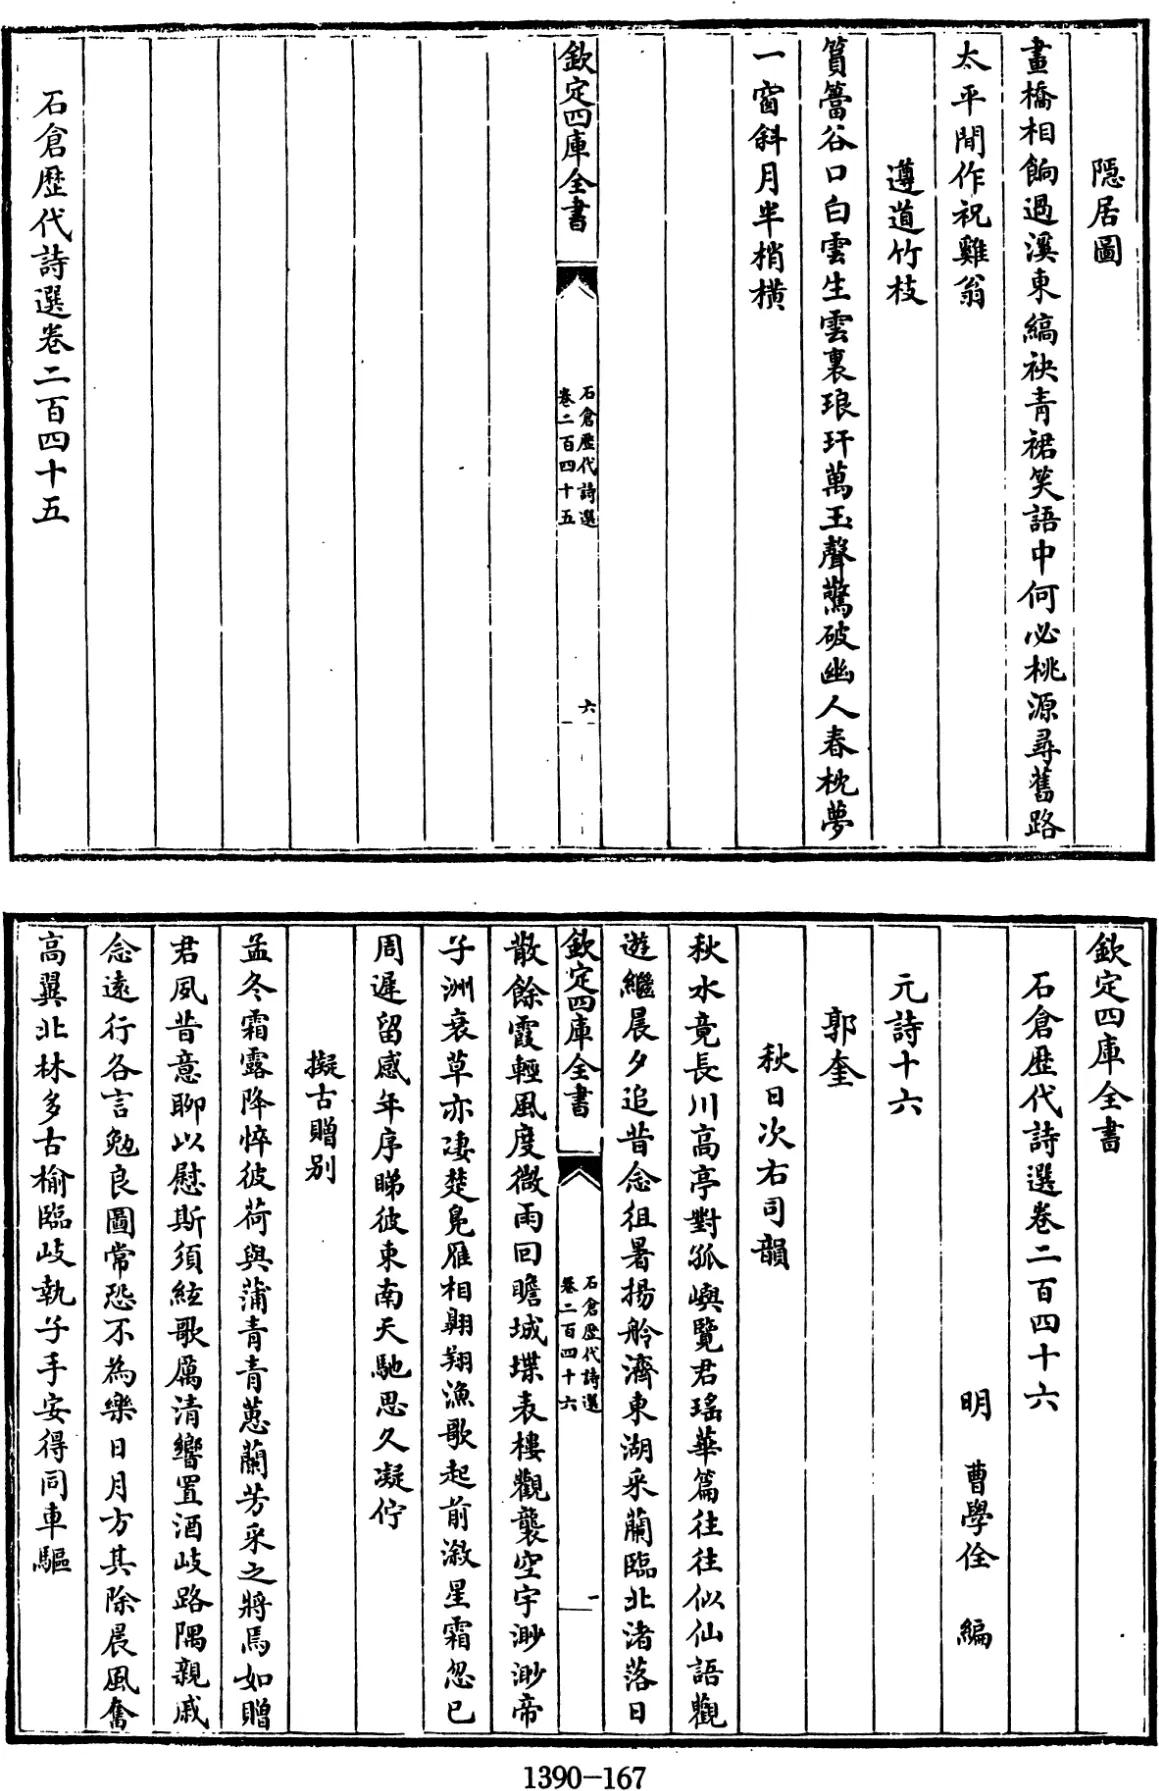 隱居圖
畫橋相餉過溪東縞袂青裙笑語中何必桃源尋舊路
太平間作祝雞翁
遵道竹枝
篔簹谷口白雲生雲裏琅玕萬玉聲驚破幽人春枕夢
一窗斜月半梢橫
欽定四庫全書
石倉歷代詩選
卷二百四十五
六
石倉歷代詩選卷二百四十五
欽定四庫全書
石倉歷代詩選卷二百四十六
明 曹學佺 編
元詩十六
郭奎
秋日次右司韻
秋水竟長川高亭對孤嶼覽君瑤華篇往往似仙語觀
遊繼晨夕追昔念徂暑揚舲濟東湖采蘭臨北渚落日
欽定四庫全書
石倉歷代詩選
卷二百四十六
一
散餘霞輕風度微雨回瞻城堞表樓觀襲空宇渺渺帝
子洲衰草亦淒楚鳧雁相翺翔漁歌起前漵星霜忽已
周遲留感年序睇彼東南天馳思久凝佇
擬古贈別
孟冬霜露降悴彼荷與蒲青青蕙蘭芳采之將焉如贈
君夙昔意聊以慰斯須絃歌厲清響置酒岐路隅親戚
念遠行各言勉良圖常恐不為樂日月方其除晨風奮
高翼北林多古榆臨岐執子手安得同車驅
1390-167